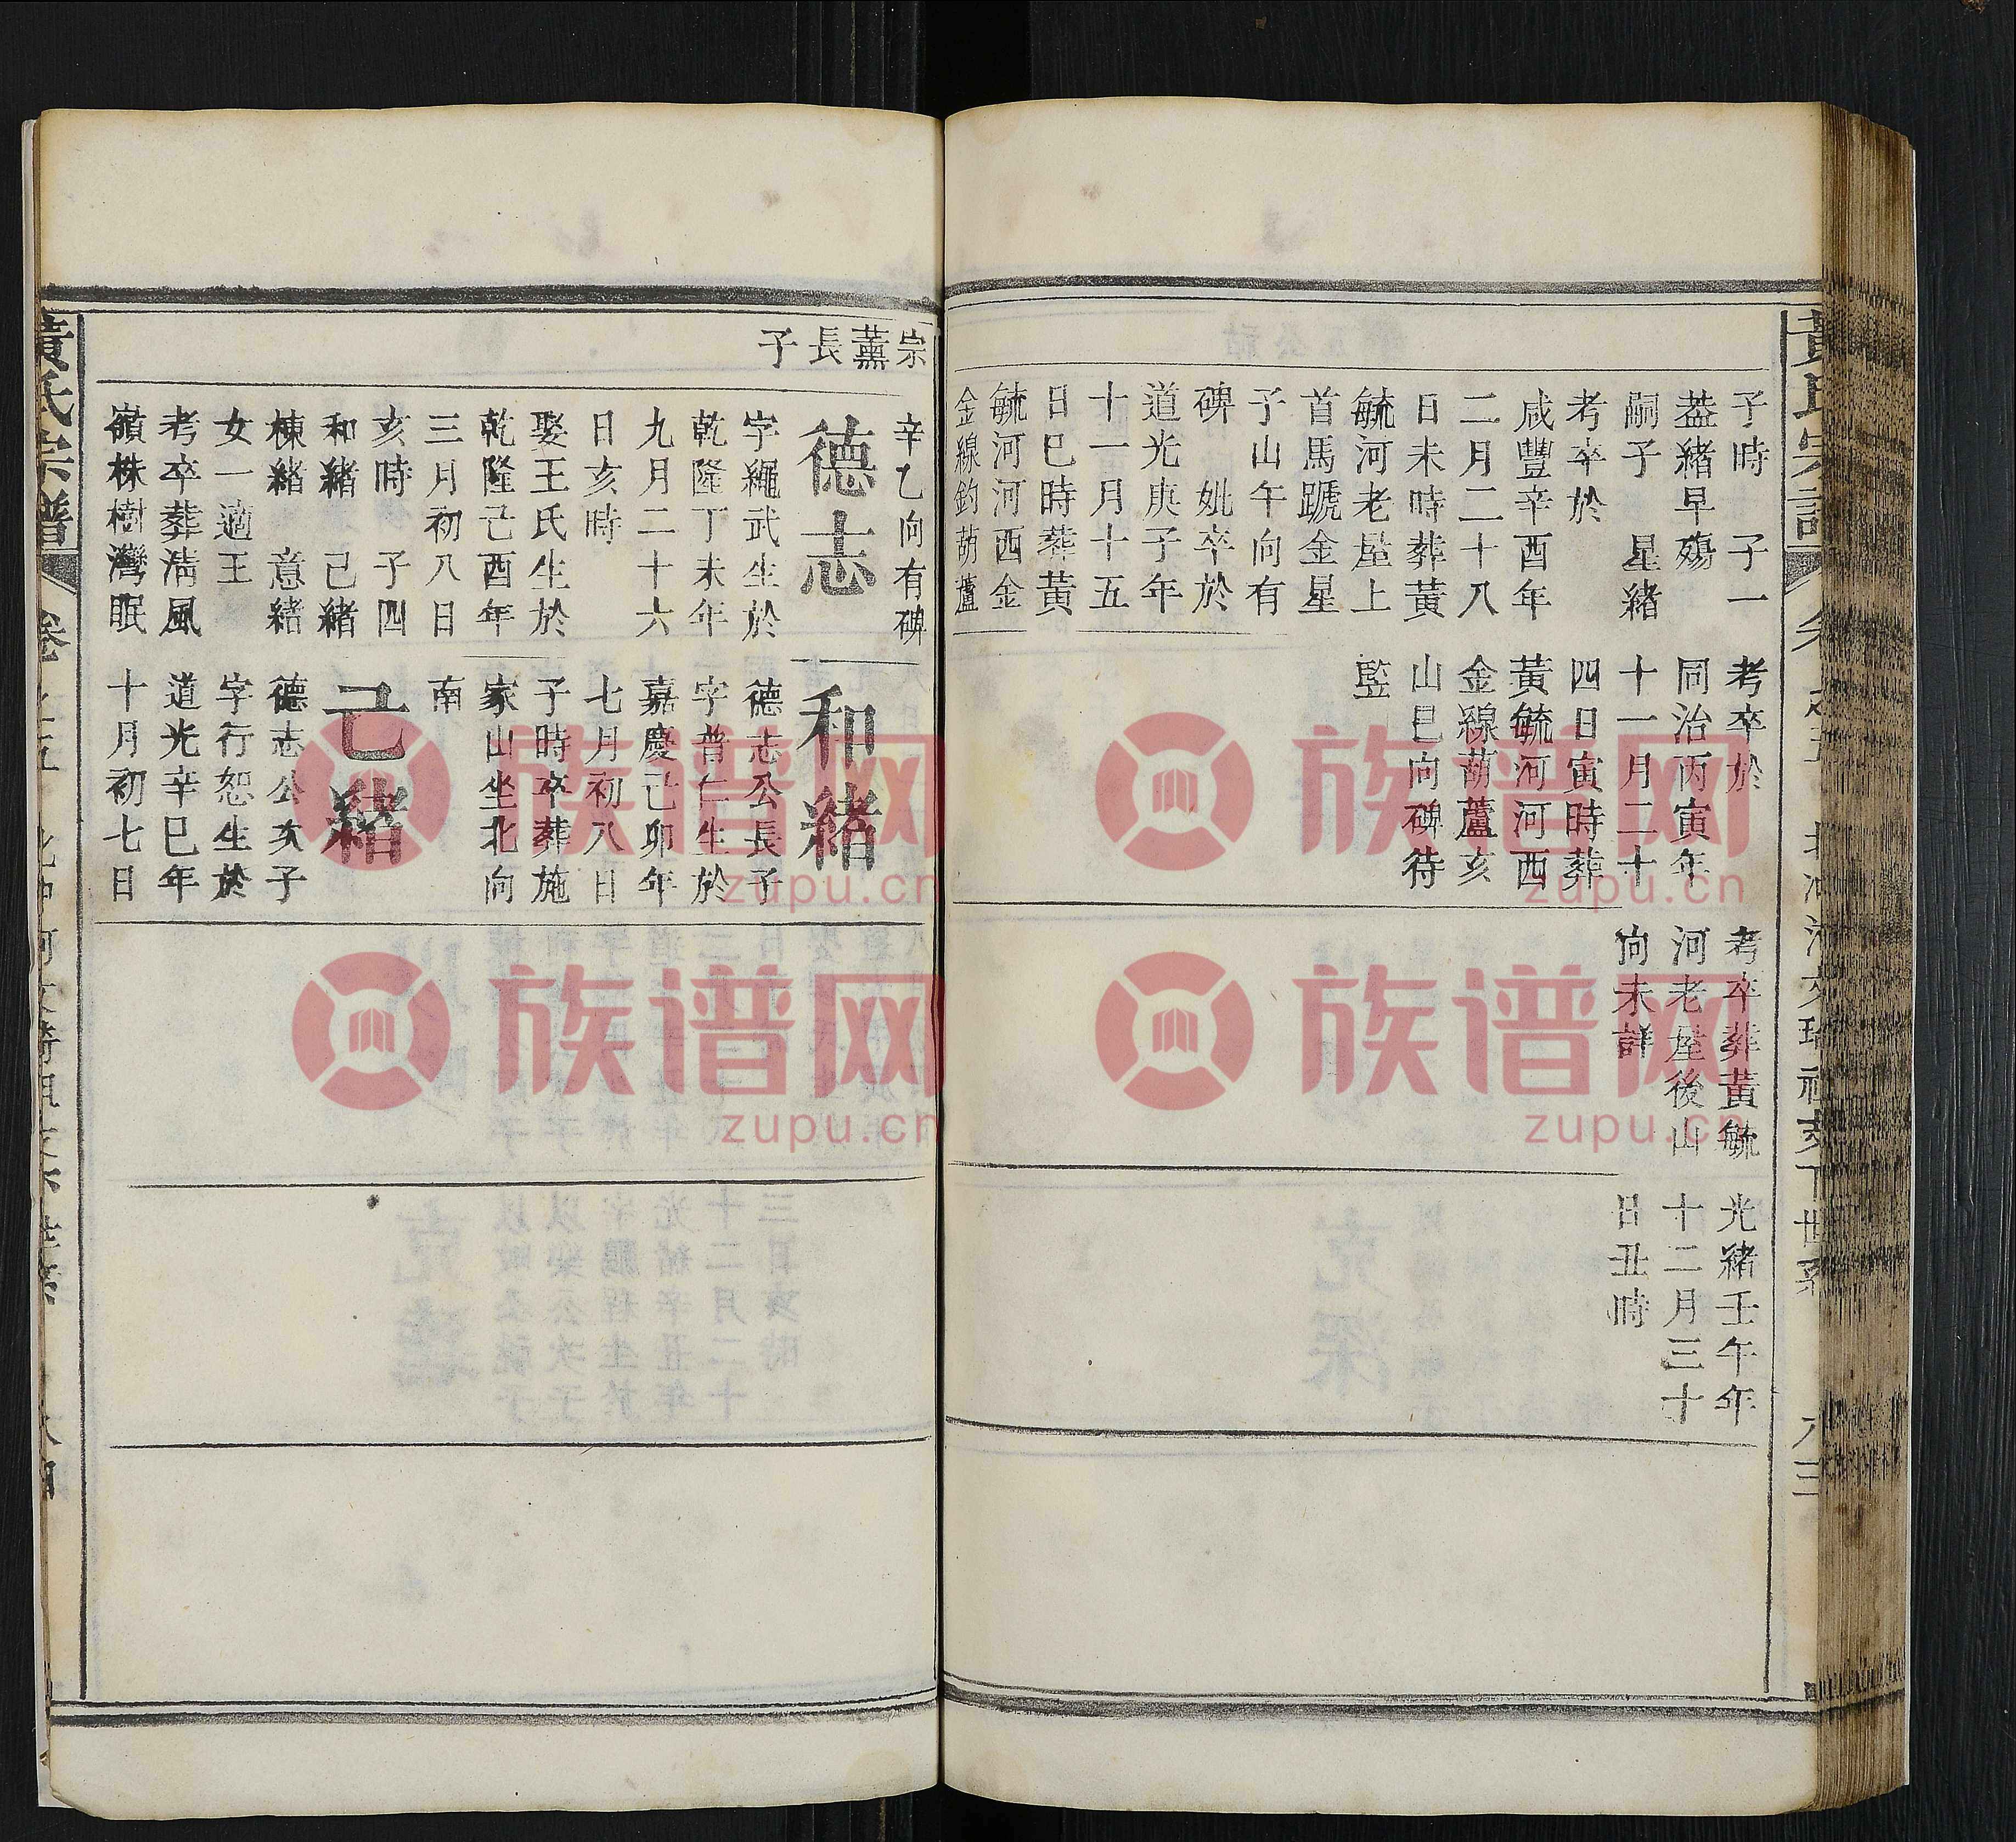 子時　子一
葢緒早殤
嗣子　星緒
考卒於
咸豐辛酉年
二月二十八
日未時葬黃
毓河老屋上
首馬蹏金星
子山午向有
碑　妣卒於
道光庚子年
十一月十五
日巳時葬黃
毓河河西金
金線釣葫蘆
考卒於
同治丙寅年
十一月二十
四日寅時葬
黃毓河河西
金線葫蘆亥
山巳向碑待
監
考卒葬黃毓
河老屋後山
向未詳
光緒壬午年
十二月三十
日丑時
八三
宗薰長子
辛乙向有碑
德志
字繩武生於
乾隆丁未年
九月二十六
日亥時
娶王氏生於
乾隆己酉年
三月初八日
亥時　子四
和緒　己緒
棟緒　意緒
女一適王
考卒葬清風
嶺株樹灣眠
和緒
德志公長子
字普仁生於
嘉慶己卯年
七月初八日
子時卒葬施
家山坐北向
南
己緒
德志公次子
字行恕生於
道光辛巳年
十月初七日
黃氏宗譜
族谱网
zupu.cn
族谱网
zupu.cn
族谱网
zupu.cn
族谱网
zupu.cn